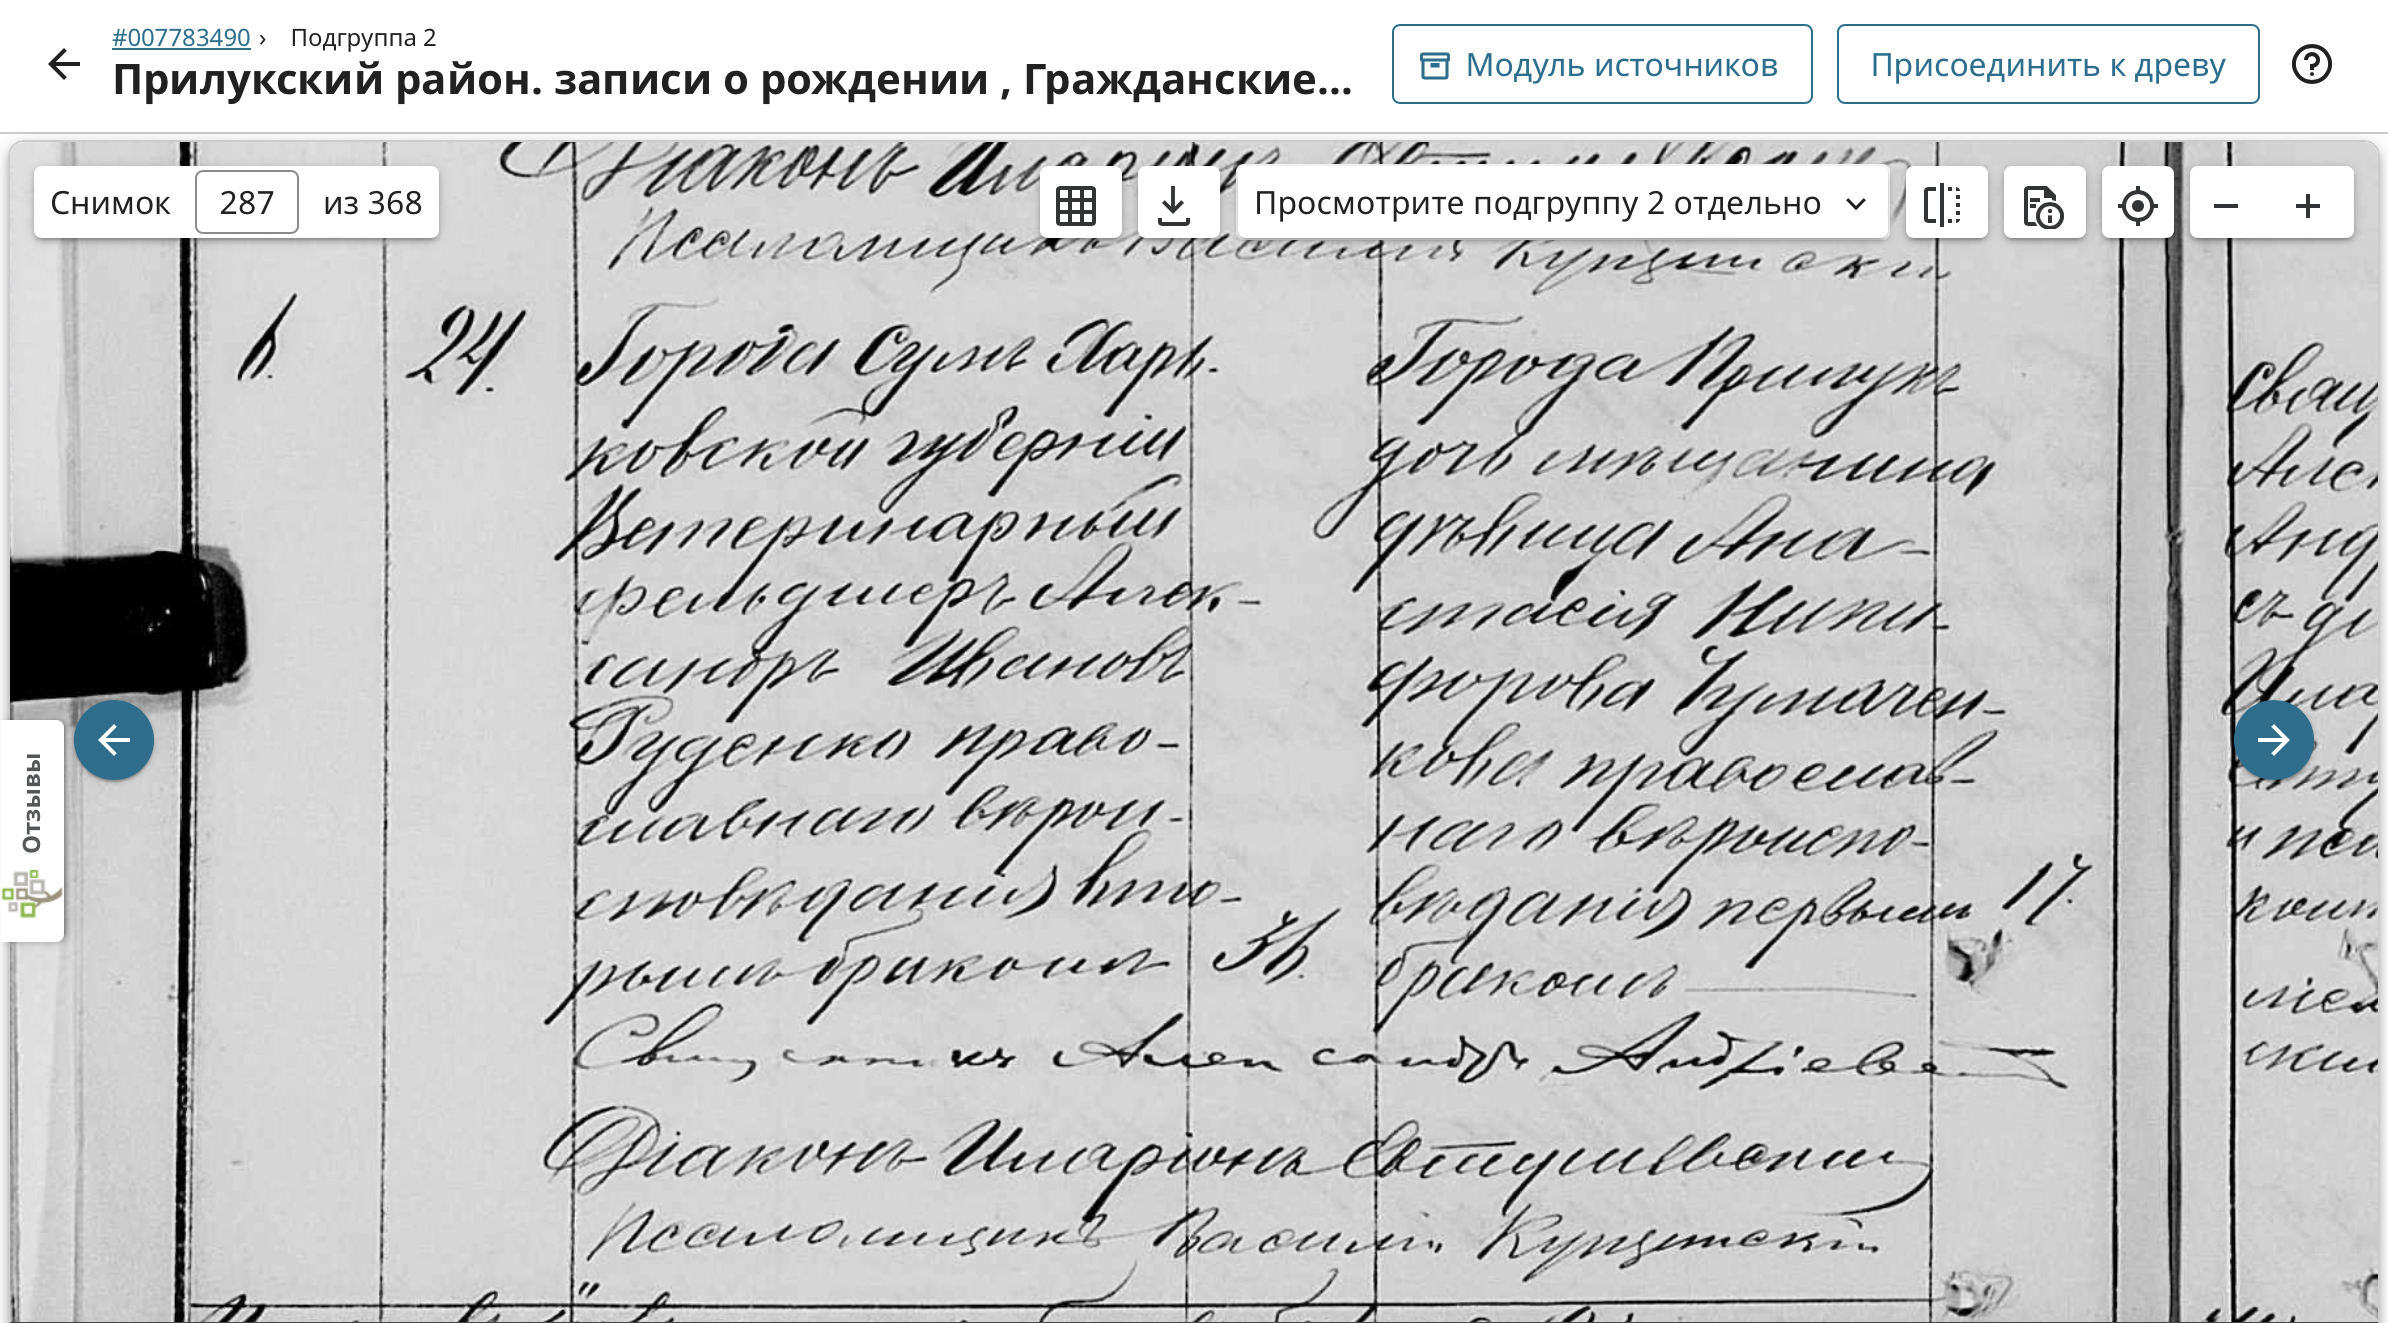 #007783490 › Подгруппа 2
Прилукский район. записи о рождении , Гражданские...
Модуль источников
Присоединить к древу
Снимок 287 из 368
Просмотрите подгруппу 2 отдельно
Отзывы
Діаконъ Иларіонъ
Псаломщикъ Василій
6. 24.
Города Сумъ Харь-
ковской губерніи
Ветеринарный
фельдшеръ Алек-
сандръ Ивановъ
Руденко право-
славнаго вѣрои-
сповѣданія вто-
рымъ бракомъ 36.
Города Прилукъ
дочь мѣщанина
дѣвица Ана-
стасія Ники-
форова Чумачен-
кова православ-
наго вѣроиспо-
вѣданія первымъ 17.
бракомъ
Священникъ Александръ Андріевскій
Діаконъ Иларіонъ
Псаломщикъ Василій